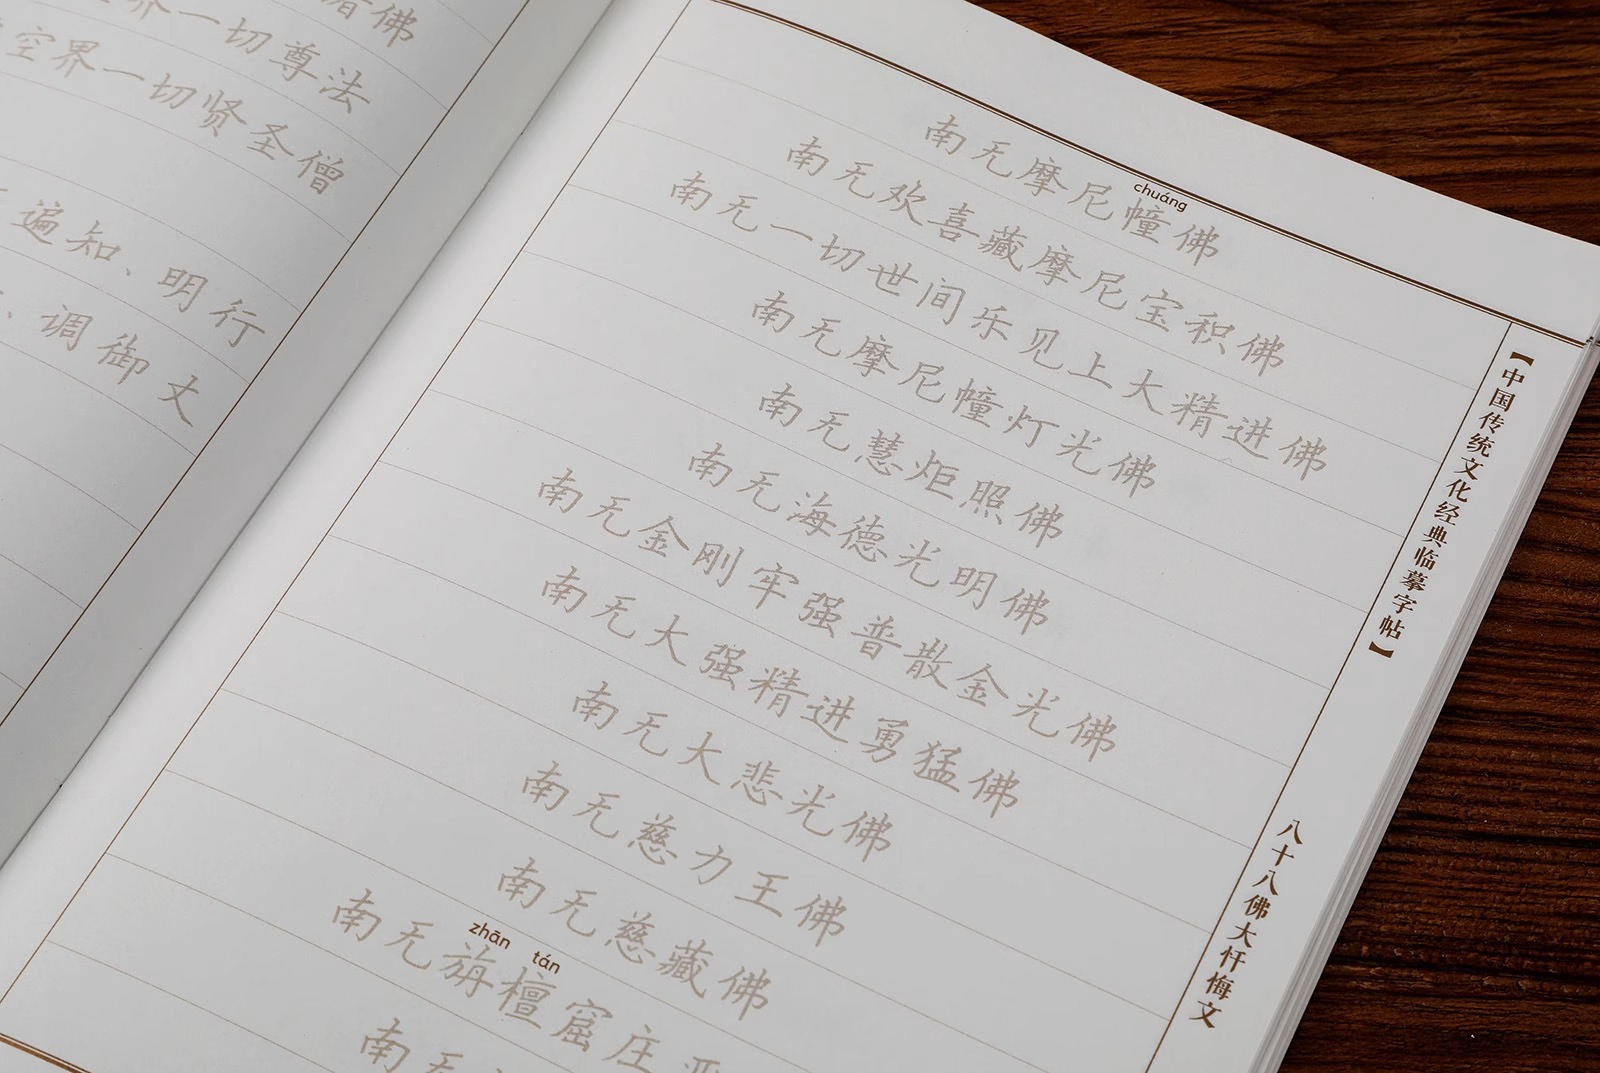 诸佛
界一切尊法
空界一切贤圣僧
遍知、明行
、调御丈
南无摩尼幢佛
chuáng
南无欢喜藏摩尼宝积佛
南无一切世间乐见上大精进佛
南无摩尼幢灯光佛
南无慧炬照佛
南无海德光明佛
南无金刚牢强普散金光佛
南无大强精进勇猛佛
南无大悲光佛
南无慈力王佛
南无慈藏佛
zhān tán
南无旃檀窟庄严
南无
【中国传统文化经典临摹字帖】
八十八佛大忏悔文